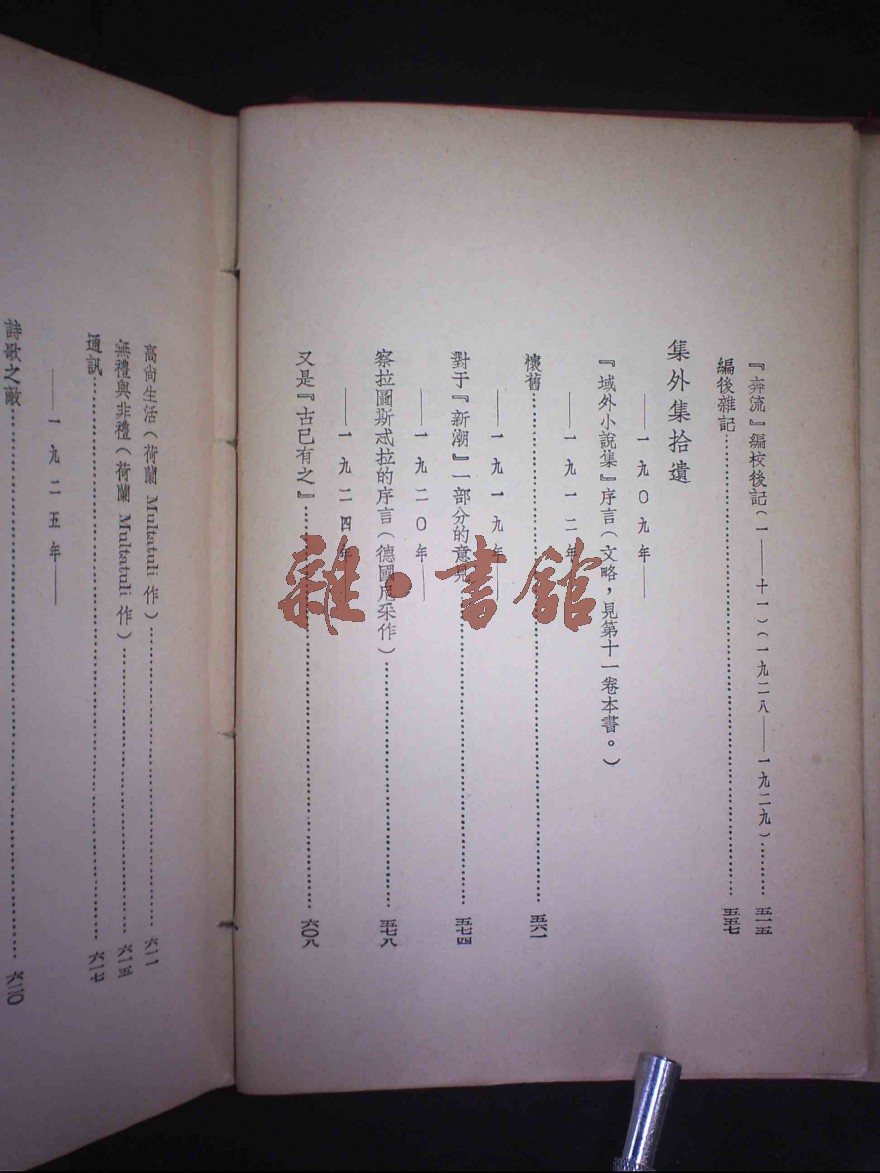 『奔流』編校後記(一——十一)(一九二八——一九二九)………五一五
編後雜記………五五七
集外集拾遺
——一九〇九年——
『域外小說集』序言(文略,見第十一卷本書。)
——一九一二年——
懷舊………五六一
——一九一九年——
對于『新潮』一部分的意見………五七四
——一九二〇年——
察拉圖斯忒拉的序言(德國尼采作)………五七八
——一九二四年——
又是『古已有之』………六〇八
高尚生活(荷蘭 Multatuli 作)………六一一
無禮與非禮(荷蘭 Multatuli 作)………六一五
通訊………六一七
——一九二五年——
詩歌之敵………六二〇
雜·書館